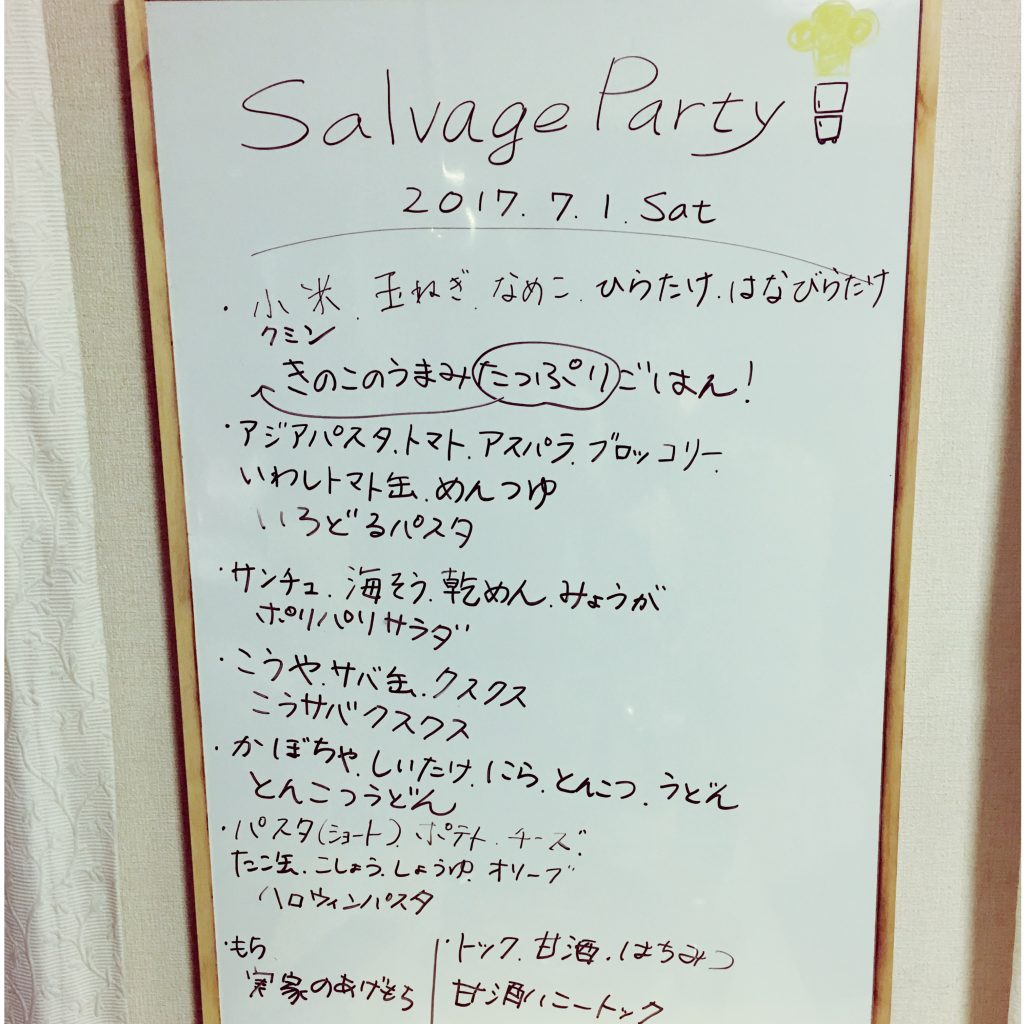 Salvage Party
2017. 7. 1. Sat
・小米、玉ねぎ、なめこ、ひらたけ、はなびらたけ
クミン
きのこのうまみたっぷりごはん!
・アジアパスタ、トマト、アスパラ、ブロッコリー、
いわしトマト缶、めんつゆ
いろどるパスタ
・サンチュ、海そう、乾めん、みょうが
ポリパリサラダ
・こうや、サバ缶、クスクス
こうサバクスクス
・かぼちゃ、しいたけ、にら、とんこつ、うどん
とんこつうどん
・パスタ(ショート)、ポテト、チーズ、
たこ缶、こしょう、しょうゆ、オリーブ
ハロウィンパスタ
・もち
実家のあげもち
・トック、甘酒、はちみつ
甘酒ハニートック